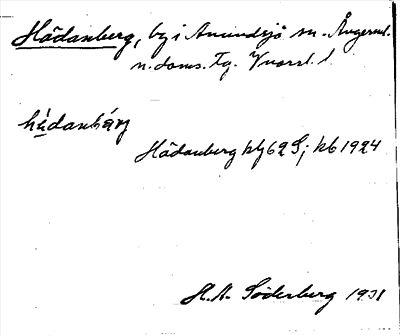 Hädanberg, by i Anundsjö sn. Ångerml.
n. doms. Tg. Kvarsl. l.
hä̀danbä́rj
Hädanberg kbl 62 S; kb 1924
H. A. Söderberg 1931